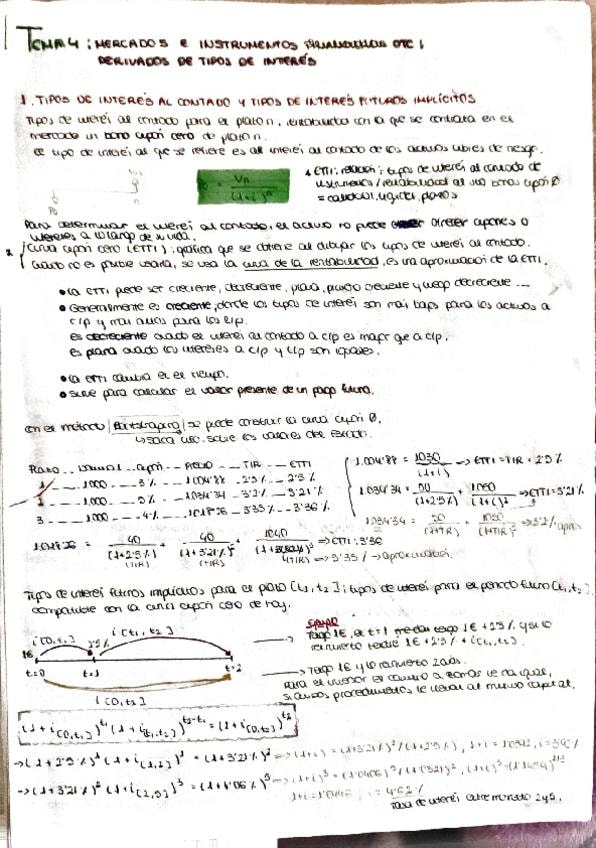 TEMA 4: MERCADOS E INSTRUMENTOS FINANCIEROS OTC:
DERIVADOS DE TIPOS DE INTERÉS
1. TIPOS DE INTERÉS AL CONTADO Y TIPOS DE INTERÉS FUTUROS IMPLÍCITOS
Tipos de interés al contado para el plazo n: rentabilidad con la que se contrata en el
mercado un bono cupón cero de plazo n.
Vn / (1+i)^n
ETTI: relación: tipos de interés al contado de
Para determinar el interés al contado, el activo no puede ofrecer cupones o
intereses a lo largo de su vida.
Curva cupón cero (ETTI): gráfica que se obtiene al dibujar los tipos de interés al contado.
Cuando no es posible usarla, se usa la curva de la rentabilidad, es una aproximación de la ETTI.
• La ETTI puede ser creciente, decreciente, plana, primero creciente y luego decreciente ...
• Generalmente es creciente, donde los tipos de interés son más bajos para los activos a
c/p y más altos para los l/p.
es decreciente cuando el interés al contado a c/p es mayor que a l/p.
es plana cuando los intereses a c/p y l/p son iguales.
• La ETTI cambia en el tiempo.
• Sirve para calcular el valor presente de un pago futuro.
Con el método Bootstrapping se puede construir la curva cupón 0.
Plazo .. Nominal .. Cupón .. Precio .. TIR .. ETTI
1 ... 1000 ... 3% ... 1.004'88 .. 2'5% .. 2'5%
2 ... 1000 ... 5% ... 1.034'34 .. 3'2% .. 3'21%
3 ... 1000 ... 4% ... 1.018'26 .. 3'35% .. 3'36%
1.004'88 = 1030 / (1+i) → ETTI = TIR = 2'5%
1.034'34 = 50 / (1+2'5%) + 1050 / (1+i)² → ETTI = 3'21%
1.034'34 = 50 / (1+TIR) + 1050 / (1+TIR)² → 3'2% aprox
1.018'26 = 40 / (1+2'5%) + 40 / (1+3'21%)² + 1040
(TIR) (TIR)
→ ETTI = 3'36
→ 3'35% → aproximación.
Tipos de interés futuros implícitos para el plazo [t1, t2]: tipos de interés para el periodo futuro [t1, t2],
compatible con la curva cupón cero de hoy.
i[0,t1] i[t1,t2]
1€ 2'5%
t=0 t=1 t=2
i[0,t2]
Ejemplo
Tengo 1€, en t=1 me dan tengo 1€ + 2'5% y si lo
reinvierto tendré 1€ + 2'5% + i[t1,t2].
→ Tengo 1€ y lo reinvierto 2 años.
si ambos procedimientos le llevan al mismo capital.
(1+i[0,t1])^t1 (1+i[t1,t2])^t2-t1 = (1+i[0,t2])^t2
→ (1+2'5%)¹ (1+i[1,2])¹ = (1+3'21%)² → (1+i) = (1+3'21%)² / (1+2'5%)
→ (1+3'21%)² (1+i[2,5])³ = (1+4'06%)⁵ → (1+i)³ = (1'0406)⁵ / (1'0321)²
i = 4'62%
Tasa de interés entre momento 2 y 5.